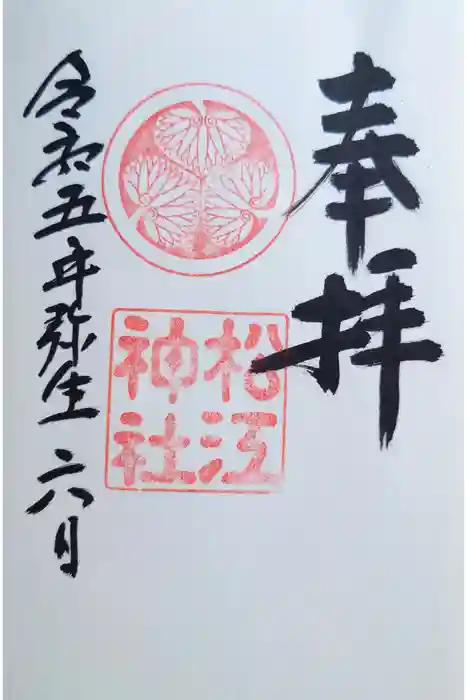 奉拝
松江
神社
令和五年弥生 六日